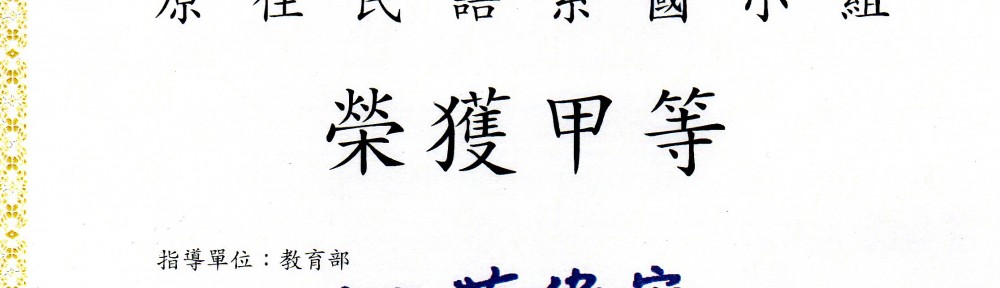 原住民語系國小組
榮獲甲等
指導單位：教育部